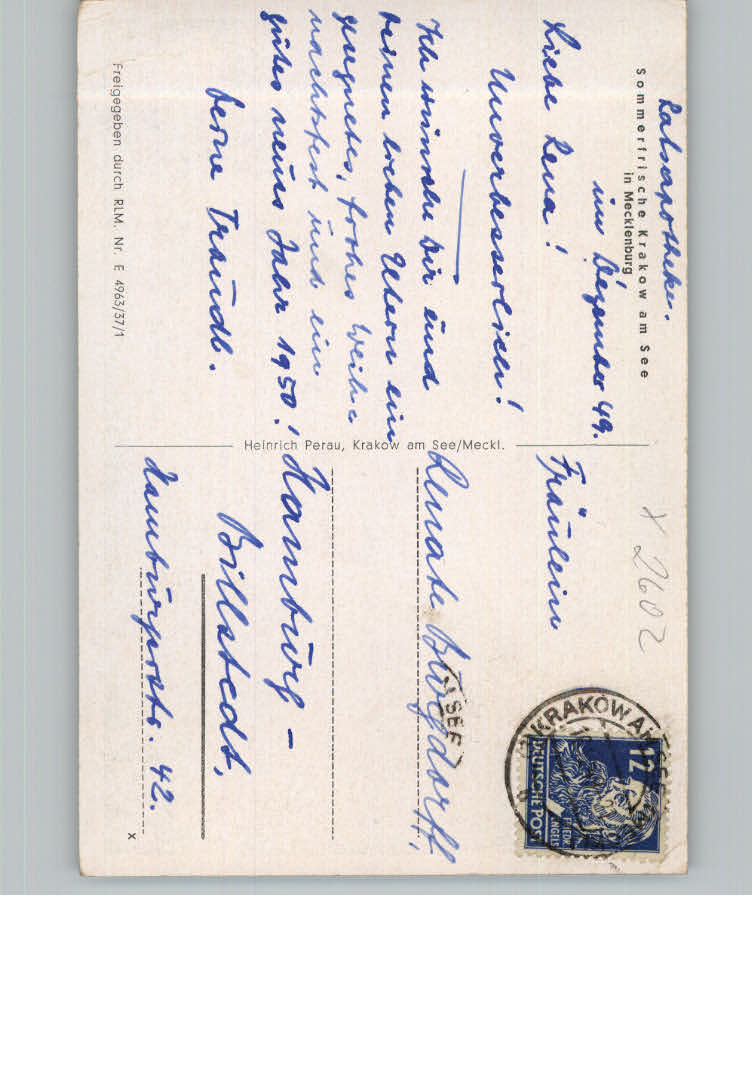 Ratsapotheke.
Sommerfrische Krakow am See
in Mecklenburg
im Dezember 49.
Liebe Rena!
Unverbesserlich!
Ich wünsche Dir und
Deinen lieben Eltern ein
gesegnetes, frohes Weih-
nachtsfest und ein
gutes neues Jahr 1950!
Deine Traudl.
Freigegeben durch RLM. Nr. E 4963/37/1
Heinrich Perau, Krakow am See/Meckl.
x 2602
KRAKOW AM SEE
12
DEUTSCHE POST
FRIEDR.
ENGELS
SEE
Fräulein
Renate Burgdorff,
Hamburg -
Billstedt,
Hamburgerstr. 42.
x